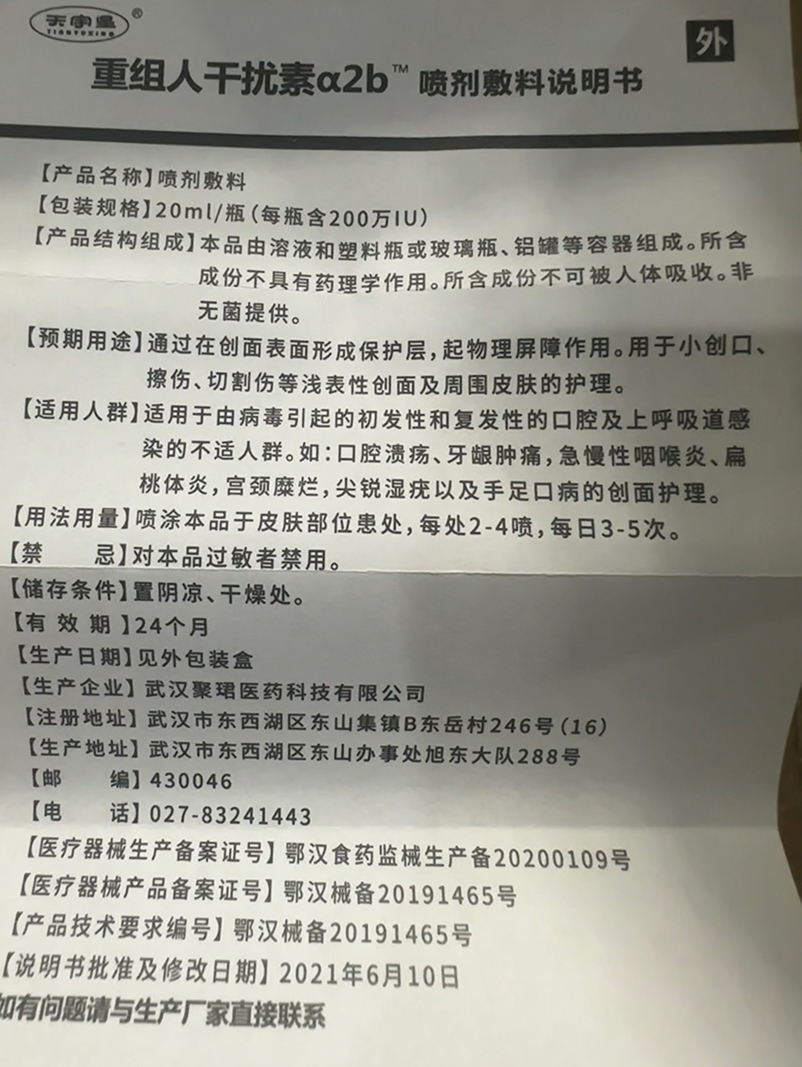 天宇星®
TIANYUXING
外
重组人干扰素α2b™ 喷剂敷料说明书
【产品名称】喷剂敷料
【包装规格】20ml/瓶(每瓶含200万IU)
【产品结构组成】本品由溶液和塑料瓶或玻璃瓶、铝罐等容器组成。所含
成份不具有药理学作用。所含成份不可被人体吸收。非
无菌提供。
【预期用途】通过在创面表面形成保护层,起物理屏障作用。用于小创口、
擦伤、切割伤等浅表性创面及周围皮肤的护理。
【适用人群】适用于由病毒引起的初发性和复发性的口腔及上呼吸道感
染的不适人群。如:口腔溃疡、牙龈肿痛,急慢性咽喉炎、扁
桃体炎,宫颈糜烂,尖锐湿疣以及手足口病的创面护理。
【用法用量】喷涂本品于皮肤部位患处,每处2-4喷,每日3-5次。
【禁 忌】对本品过敏者禁用。
【储存条件】置阴凉、干燥处。
【有 效 期 】24个月
【生产日期】见外包装盒
【生产企业】武汉聚珺医药科技有限公司
【注册地址】武汉市东西湖区东山集镇B东岳村246号(16)
【生产地址】武汉市东西湖区东山办事处旭东大队288号
【邮 编】430046
【电 话】027-83241443
【医疗器械生产备案证号】鄂汉食药监械生产备20200109号
【医疗器械产品备案证号】鄂汉械备20191465号
【产品技术要求编号】鄂汉械备20191465号
【说明书批准及修改日期】2021年6月10日
如有问题请与生产厂家直接联系